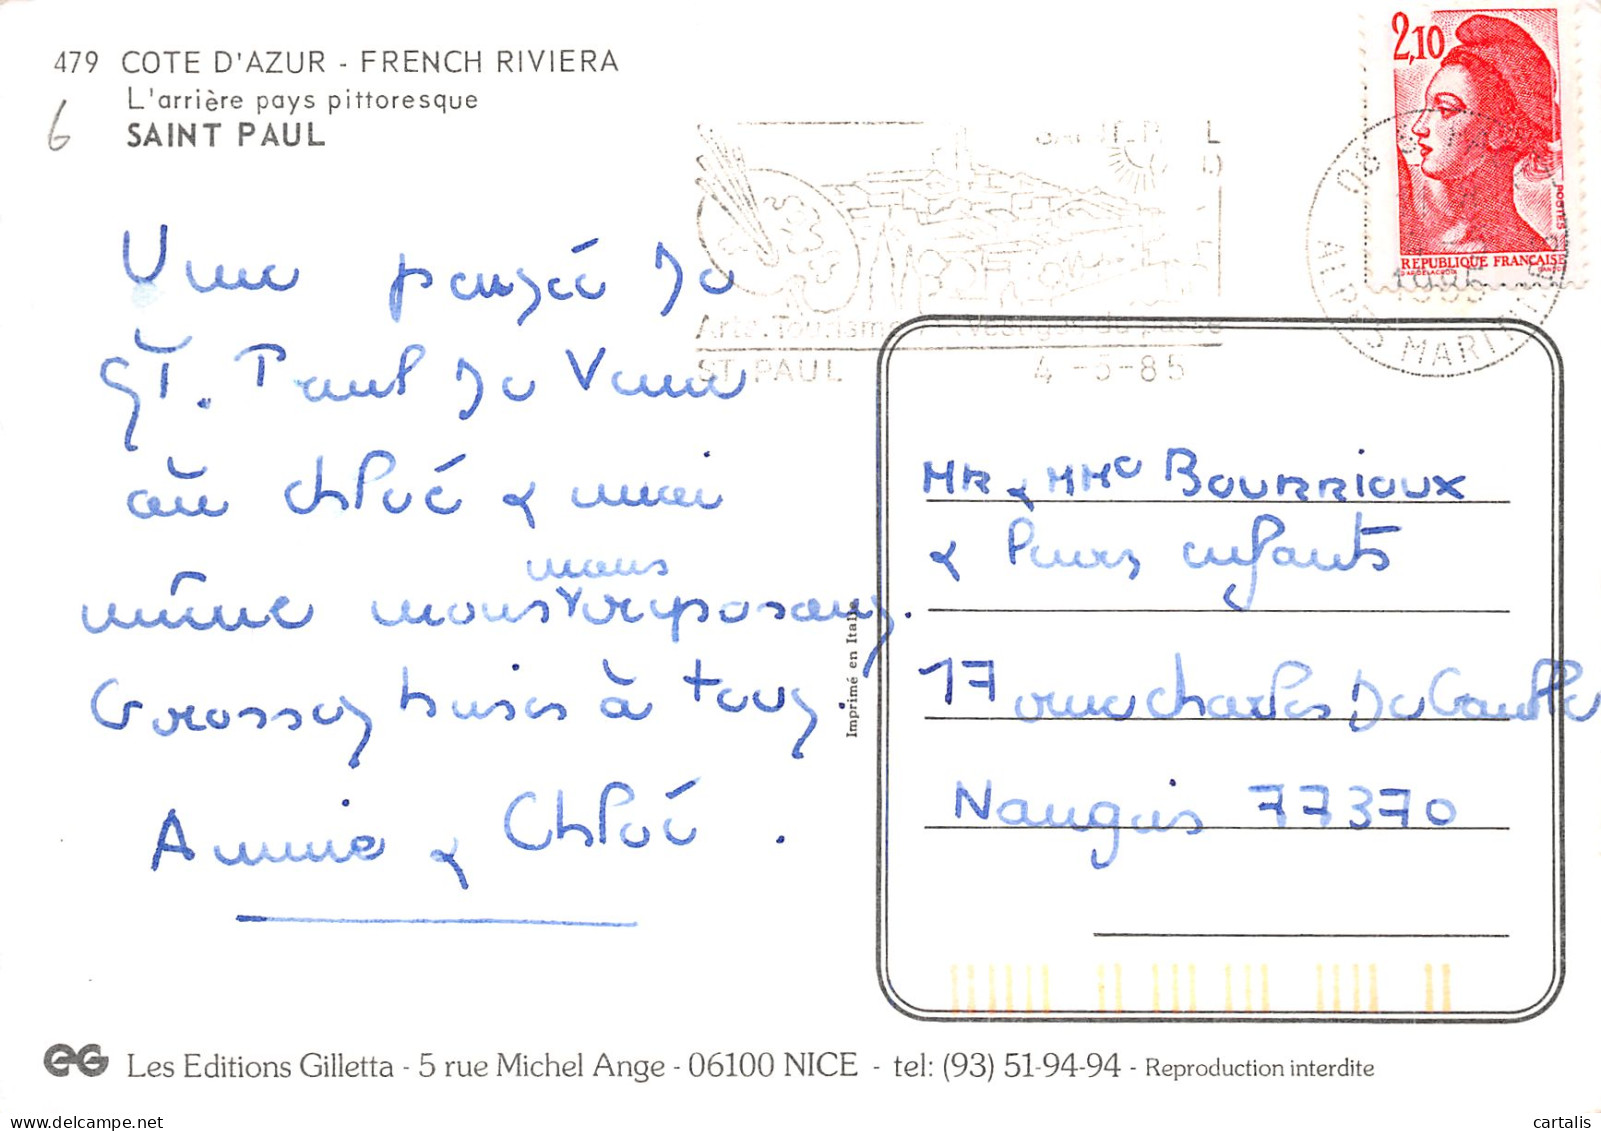 479 COTE D'AZUR - FRENCH RIVIERA
L'arrière pays pittoresque
SAINT PAUL
6
2,10
POSTES
REPUBLIQUE FRANÇAISE
1985
ALPES MARITIMES
Arts. Tourisme. Vestiges du passé
ST PAUL 4-5-85
Une pensée de
ST. Paul de Vence
où Chloé & moi
nous
même nous reposons.
Grosses bises à tous.
Annie & Chloé.
MR & MMe BOURRIOUX
& leurs enfants
17 rue Charles De Gaulle
Nangis 77370
Imprimé en Italie
EG Les Editions Gilletta - 5 rue Michel Ange - 06100 NICE - tel: (93) 51-94-94 - Reproduction interdite
delcampe.net
cartalis